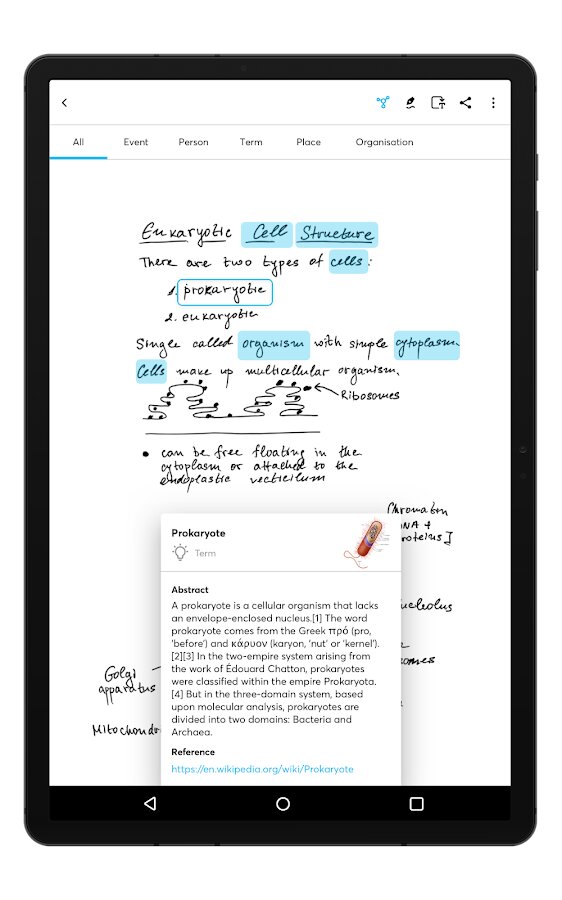 All Event Person Term Place Organisation
Eukaryotic Cell Structure
There are two types of cells:
1. prokaryotic
2. eukaryotic
Single called organism with simple cytoplasm.
Cells make up multicellular organism.
Ribosomes
• can be free floating in the
cytoplasm or attached to the
endoplastic
Chromatin
NA +
roteins]
Prokaryote
Term
Abstract
A prokaryote is a cellular organism that lacks
an envelope-enclosed nucleus.[1] The word
prokaryote comes from the Greek πρό (pro,
'before') and κάρυον (karyon, 'nut' or 'kernel').
[2][3] In the two-empire system arising from
the work of Édouard Chatton, prokaryotes
were classified within the empire Prokaryota.
[4] But in the three-domain system, based
upon molecular analysis, prokaryotes are
divided into two domains: Bacteria and
Archaea.
Reference
https://en.wikipedia.org/wiki/Prokaryote
ucleolus
omes
Golgi
apparatus
Mitochond